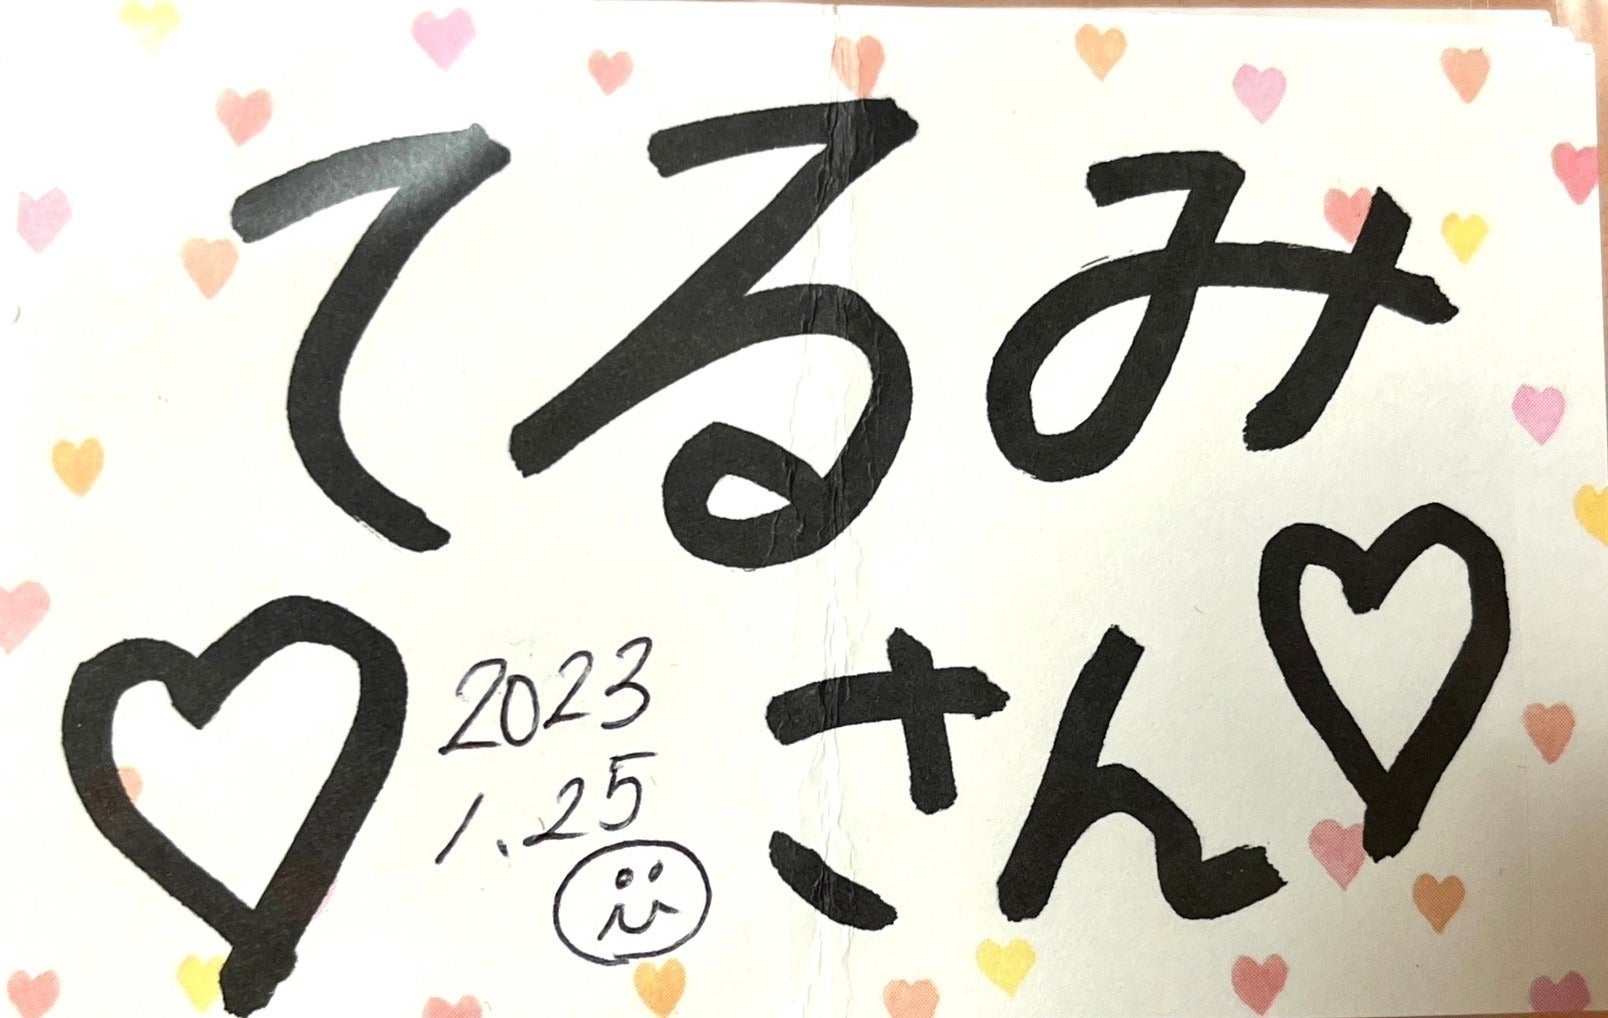 てるみ
さん
2023
1.25